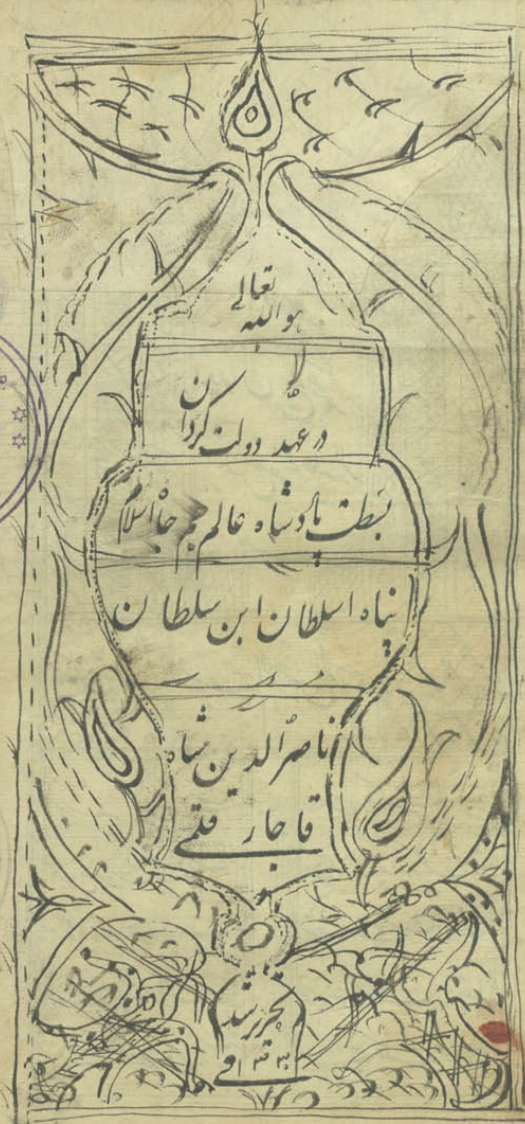 هو الله تعالی
در عهد دولت گردان
بسطت پادشاه عالم جم جاه اسلام
پناه اسلطان ابن سلطان
ناصرالدین شاه
قاجار قلمی
تحریر شد